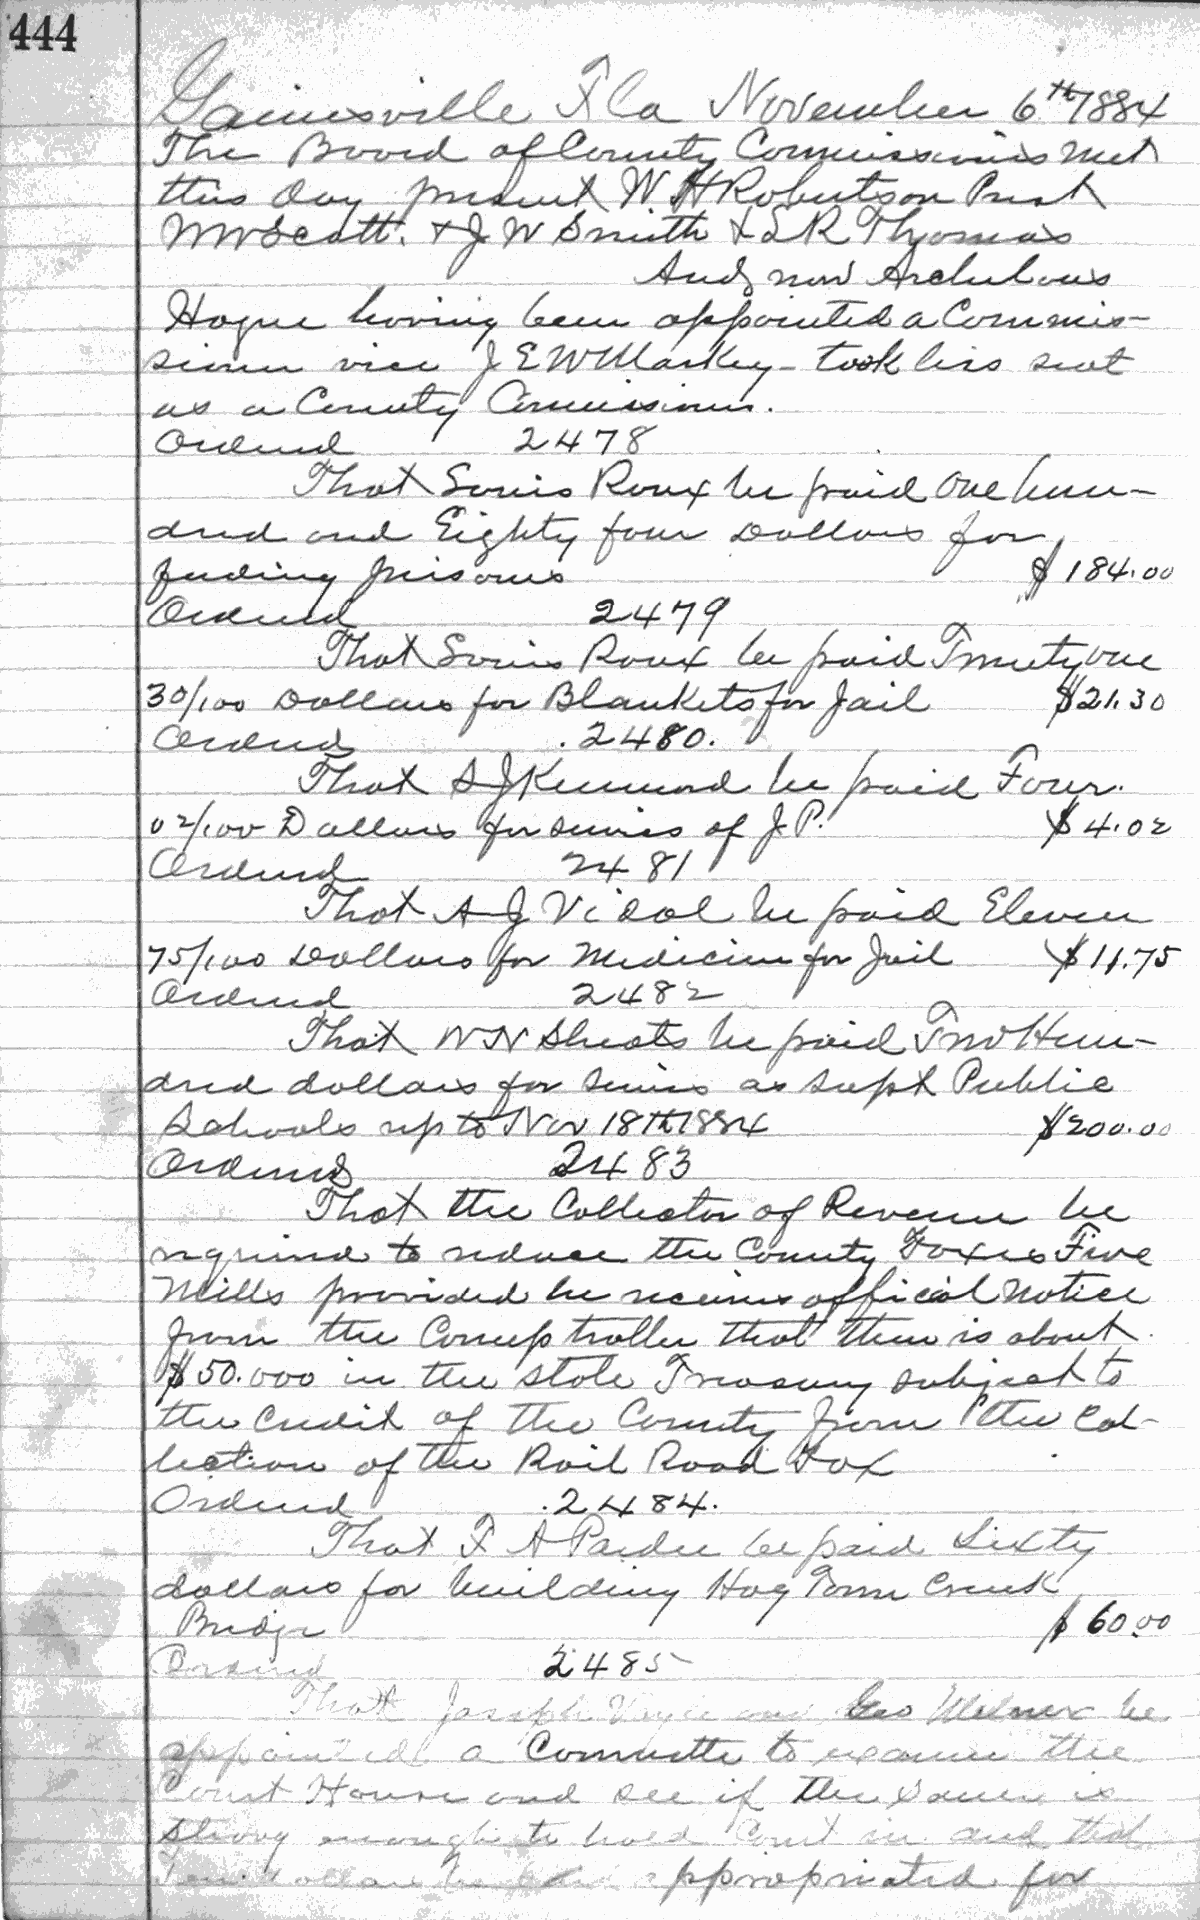 444
Gainesville Fla November 6th 1884
The Board of County Commissioners met
this day present W. H Robertson Prest
W W Scott. & J W Smith & S R Thomas
And now Archelous
Hogue having been appointed a Commis-
sioner vice J E W Markey - took his seat
as a County Commissioner.
Ordered 2478
That Louis Roux be paid One hun-
dred and Eighty four Dollars for
feeding prisoners $184.00
Ordered 2479
That Louis Roux be paid Twenty one
30/100 Dollars for Blankets for Jail $21.30
Ordered .2480.
That S J Kennard be paid Four
02/100 Dollars for services of J.P. $4.02
Ordered 2481
That A J Vidal be paid Eleven
75/100 Dollars for Medicine for Jail $11.75
Ordered 2482
That W N Sheats be paid Two Hun-
dred dollars for services as Supt Public
Schools up to Nov 18th 1884 $200.00
Ordered 2483
That the Collector of Revenue be
required to reduce the County Taxes Five
Mills provided he receives official Notice
from the Comptroller that there is about
$50.000 in the State Treasury subject to
the credit of the County from the Col-
lection of the Rail Road Tax
Ordered .2484.
That F A Pardee be paid Sixty
dollars for building Hog Town Creek
Bridge $60.00
Ordered 2485
That Joseph Voyle and Geo Milner be
appointed a Committe to examine the
Court House and see if the same is
strong enough to hold Court in and that
Ten dollars be appropriated for